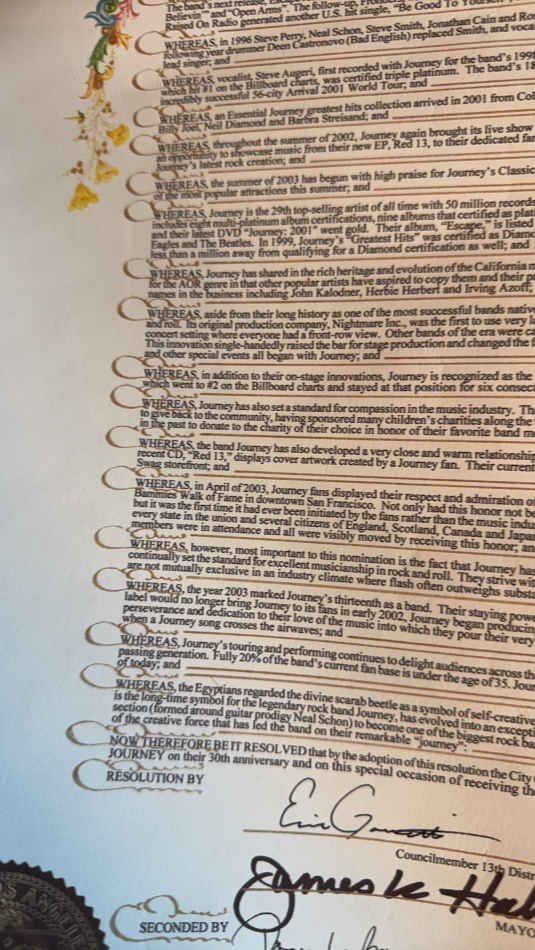 The band's next release,
Believin'" and "Open Arms". The follow-up,
Raised On Radio generated another U.S. hit single, "Be Good To Yourself
WHEREAS, in 1996 Steve Perry, Neal Schon, Steve Smith, Jonathan Cain and
following year drummer Deen Castronovo (Bad English) replaced Smith, and
lead singer; and
WHEREAS, vocalist, Steve Augeri, first recorded with Journey for the band's
which hit #1 on the Billboard charts, was certified triple platinum. The band's
incredibly successful 56-city Arrival 2001 World Tour; and
WHEREAS, an Essential Journey greatest hits collection arrived in 2001 from
Billy Joel, Neil Diamond and Barbra Streisand; and
WHEREAS, throughout the summer of 2002, Journey again brought its live show
an opportunity to showcase music from their new EP, Red 13, to their dedicated
Journey's latest rock creation; and
WHEREAS, the summer of 2003 has begun with high praise for Journey's Classic
of the most popular attractions this summer; and
WHEREAS, Journey is the 29th top-selling artist of all time with 50 million records
includes eight multi-platinum album certifications, nine albums that certified as
and their latest DVD "Journey: 2001" went gold. Their album, "Escape," is listed
Eagles and The Beatles. In 1999, Journey's "Greatest Hits" was certified as
less than a million away from qualifying for a Diamond certification as well; and
WHEREAS, Journey has shared in the rich heritage and evolution of the California
for the AOR genre in that other popular artists have aspired to copy them and their
names in the business including John Kalodner, Herbie Herbert and Irving Azoff;
WHEREAS, aside from their long history as one of the most successful bands
and roll. Its original production company, Nightmare Inc., was the first to use very
concert setting where everyone had a front-row view. Other bands of the era were
This innovation single-handedly raised the bar for stage production and changed the
and other special events all began with Journey; and
WHEREAS, in addition to their on-stage innovations, Journey is recognized as the
which went to #2 on the Billboard charts and stayed at that position for six
WHEREAS, Journey has also set a standard for compassion in the music industry.
to give back to the community, having sponsored many children's charities along the
in the past to donate to the charity of their choice in honor of their favorite band
WHEREAS, the band Journey has also developed a very close and warm
recent CD, "Red 13," displays cover artwork created by a Journey fan. Their current
Swag storefront; and
WHEREAS, in April of 2003, Journey fans displayed their respect and admiration
Bammies Walk of Fame in downtown San Francisco. Not only had this honor not
but it was the first time it had ever been initiated by the fans rather than the music
every state in the union and several citizens of England, Scotland, Canada and
members were in attendance and all were visibly moved by receiving this honor;
WHEREAS, however, most important to this nomination is the fact that Journey has
continually set the standard for excellent musicianship in rock and roll. They strive
are not mutually exclusive in an industry climate where flash often outweighs
WHEREAS, the year 2003 marked Journey's thirteenth as a band. Their staying
label would no longer bring Journey to its fans in early 2002, Journey began
perseverance and dedication to their love of the music into which they pour their very
when a Journey song crosses the airwaves; and
WHEREAS, Journey's touring and performing continues to delight audiences across
passing generation. Fully 20% of the band's current fan base is under the age of 35.
of today; and
WHEREAS, the Egyptians regarded the divine scarab beetle as a symbol of
is the long-time symbol for the legendary rock band Journey, has evolved into an
section (formed around guitar prodigy Neal Schon) to become one of the biggest rock
of the creative force that has led the band on their remarkable "journey":
NOW THEREFORE BE IT RESOLVED that by the adoption of this resolution the City
JOURNEY on their 30th anniversary and on this special occasion of receiving
RESOLUTION BY
Councilmember 13th
James K Hahn
SECONDED BY